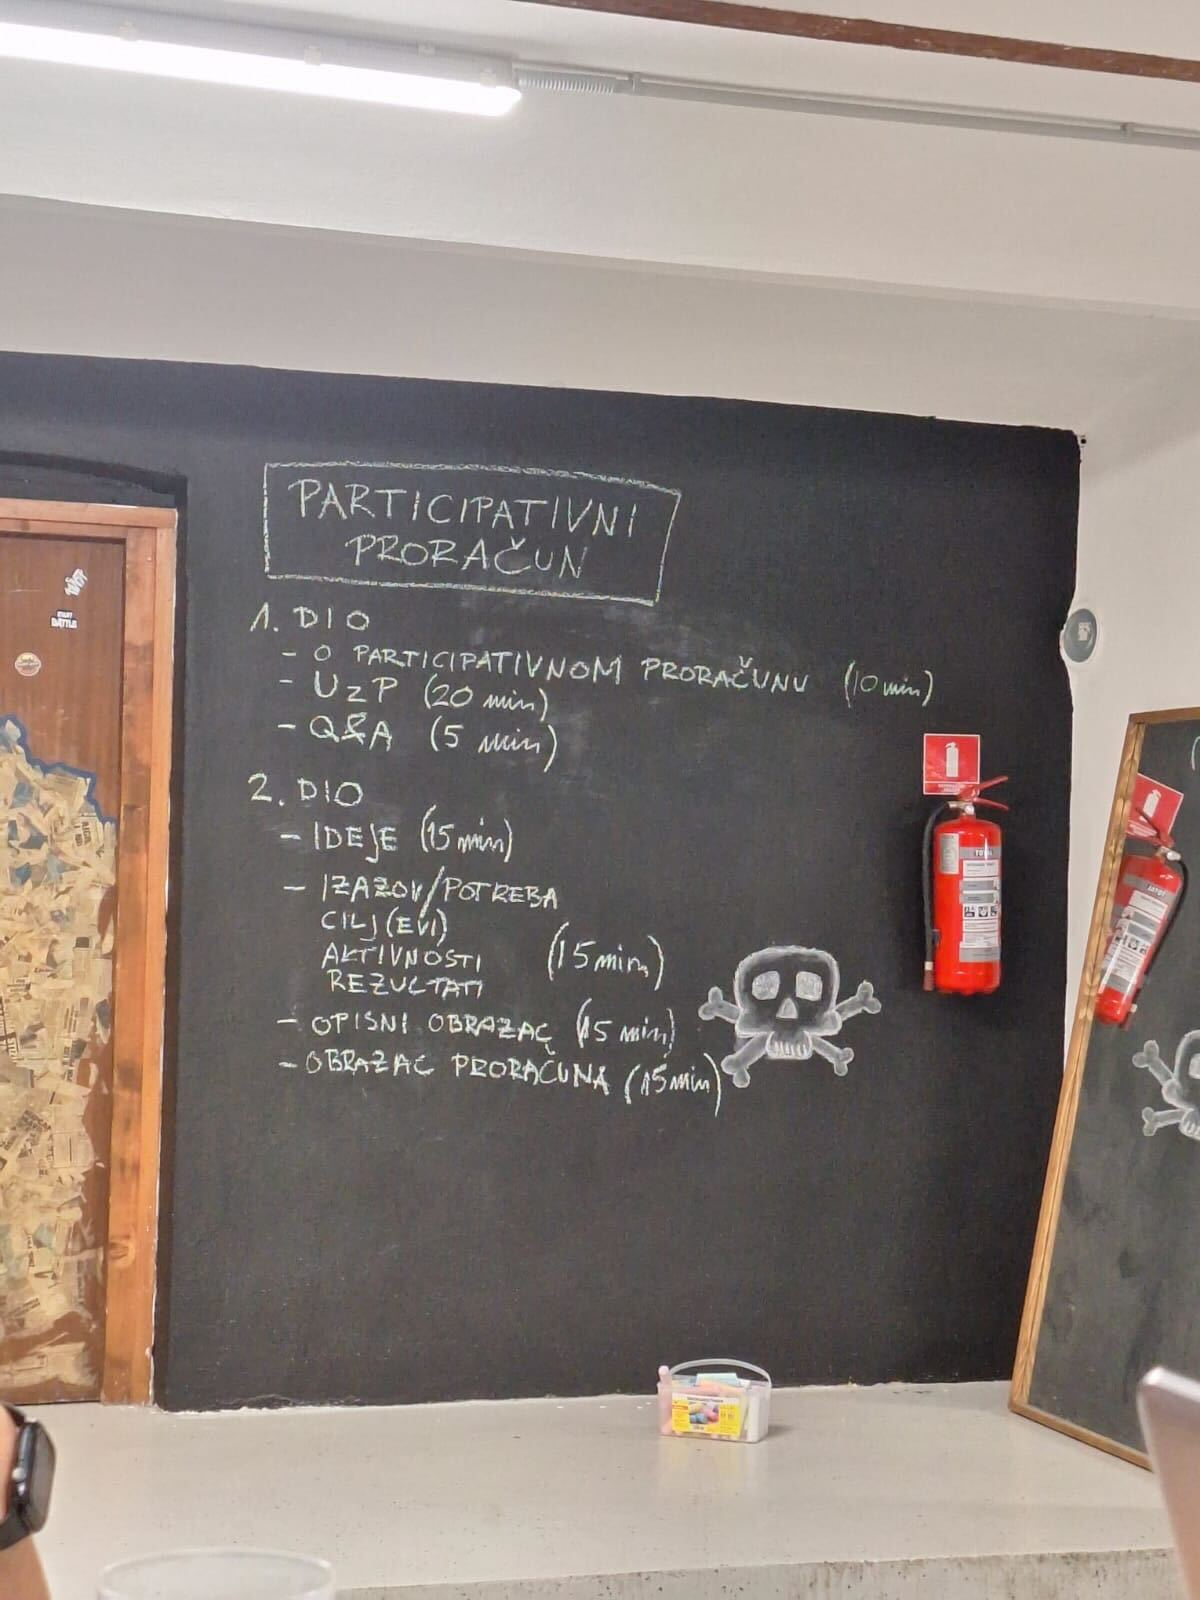 PARTICIPATIVNI
PRORAČUN
1. DIO
- O PARTICIPATIVNOM PRORAČUNU (10 min)
- UzP (20 min)
- Q&A (5 min)
2. DIO
- IDEJE (15 min)
- IZAZOV/POTREBA
CILJ(EVI)
AKTIVNOSTI (15 min)
REZULTATI
- OPISNI OBRAZAC (15 min)
- OBRAZAC PRORAČUNA (15 min)
BATTLE
TOTAL